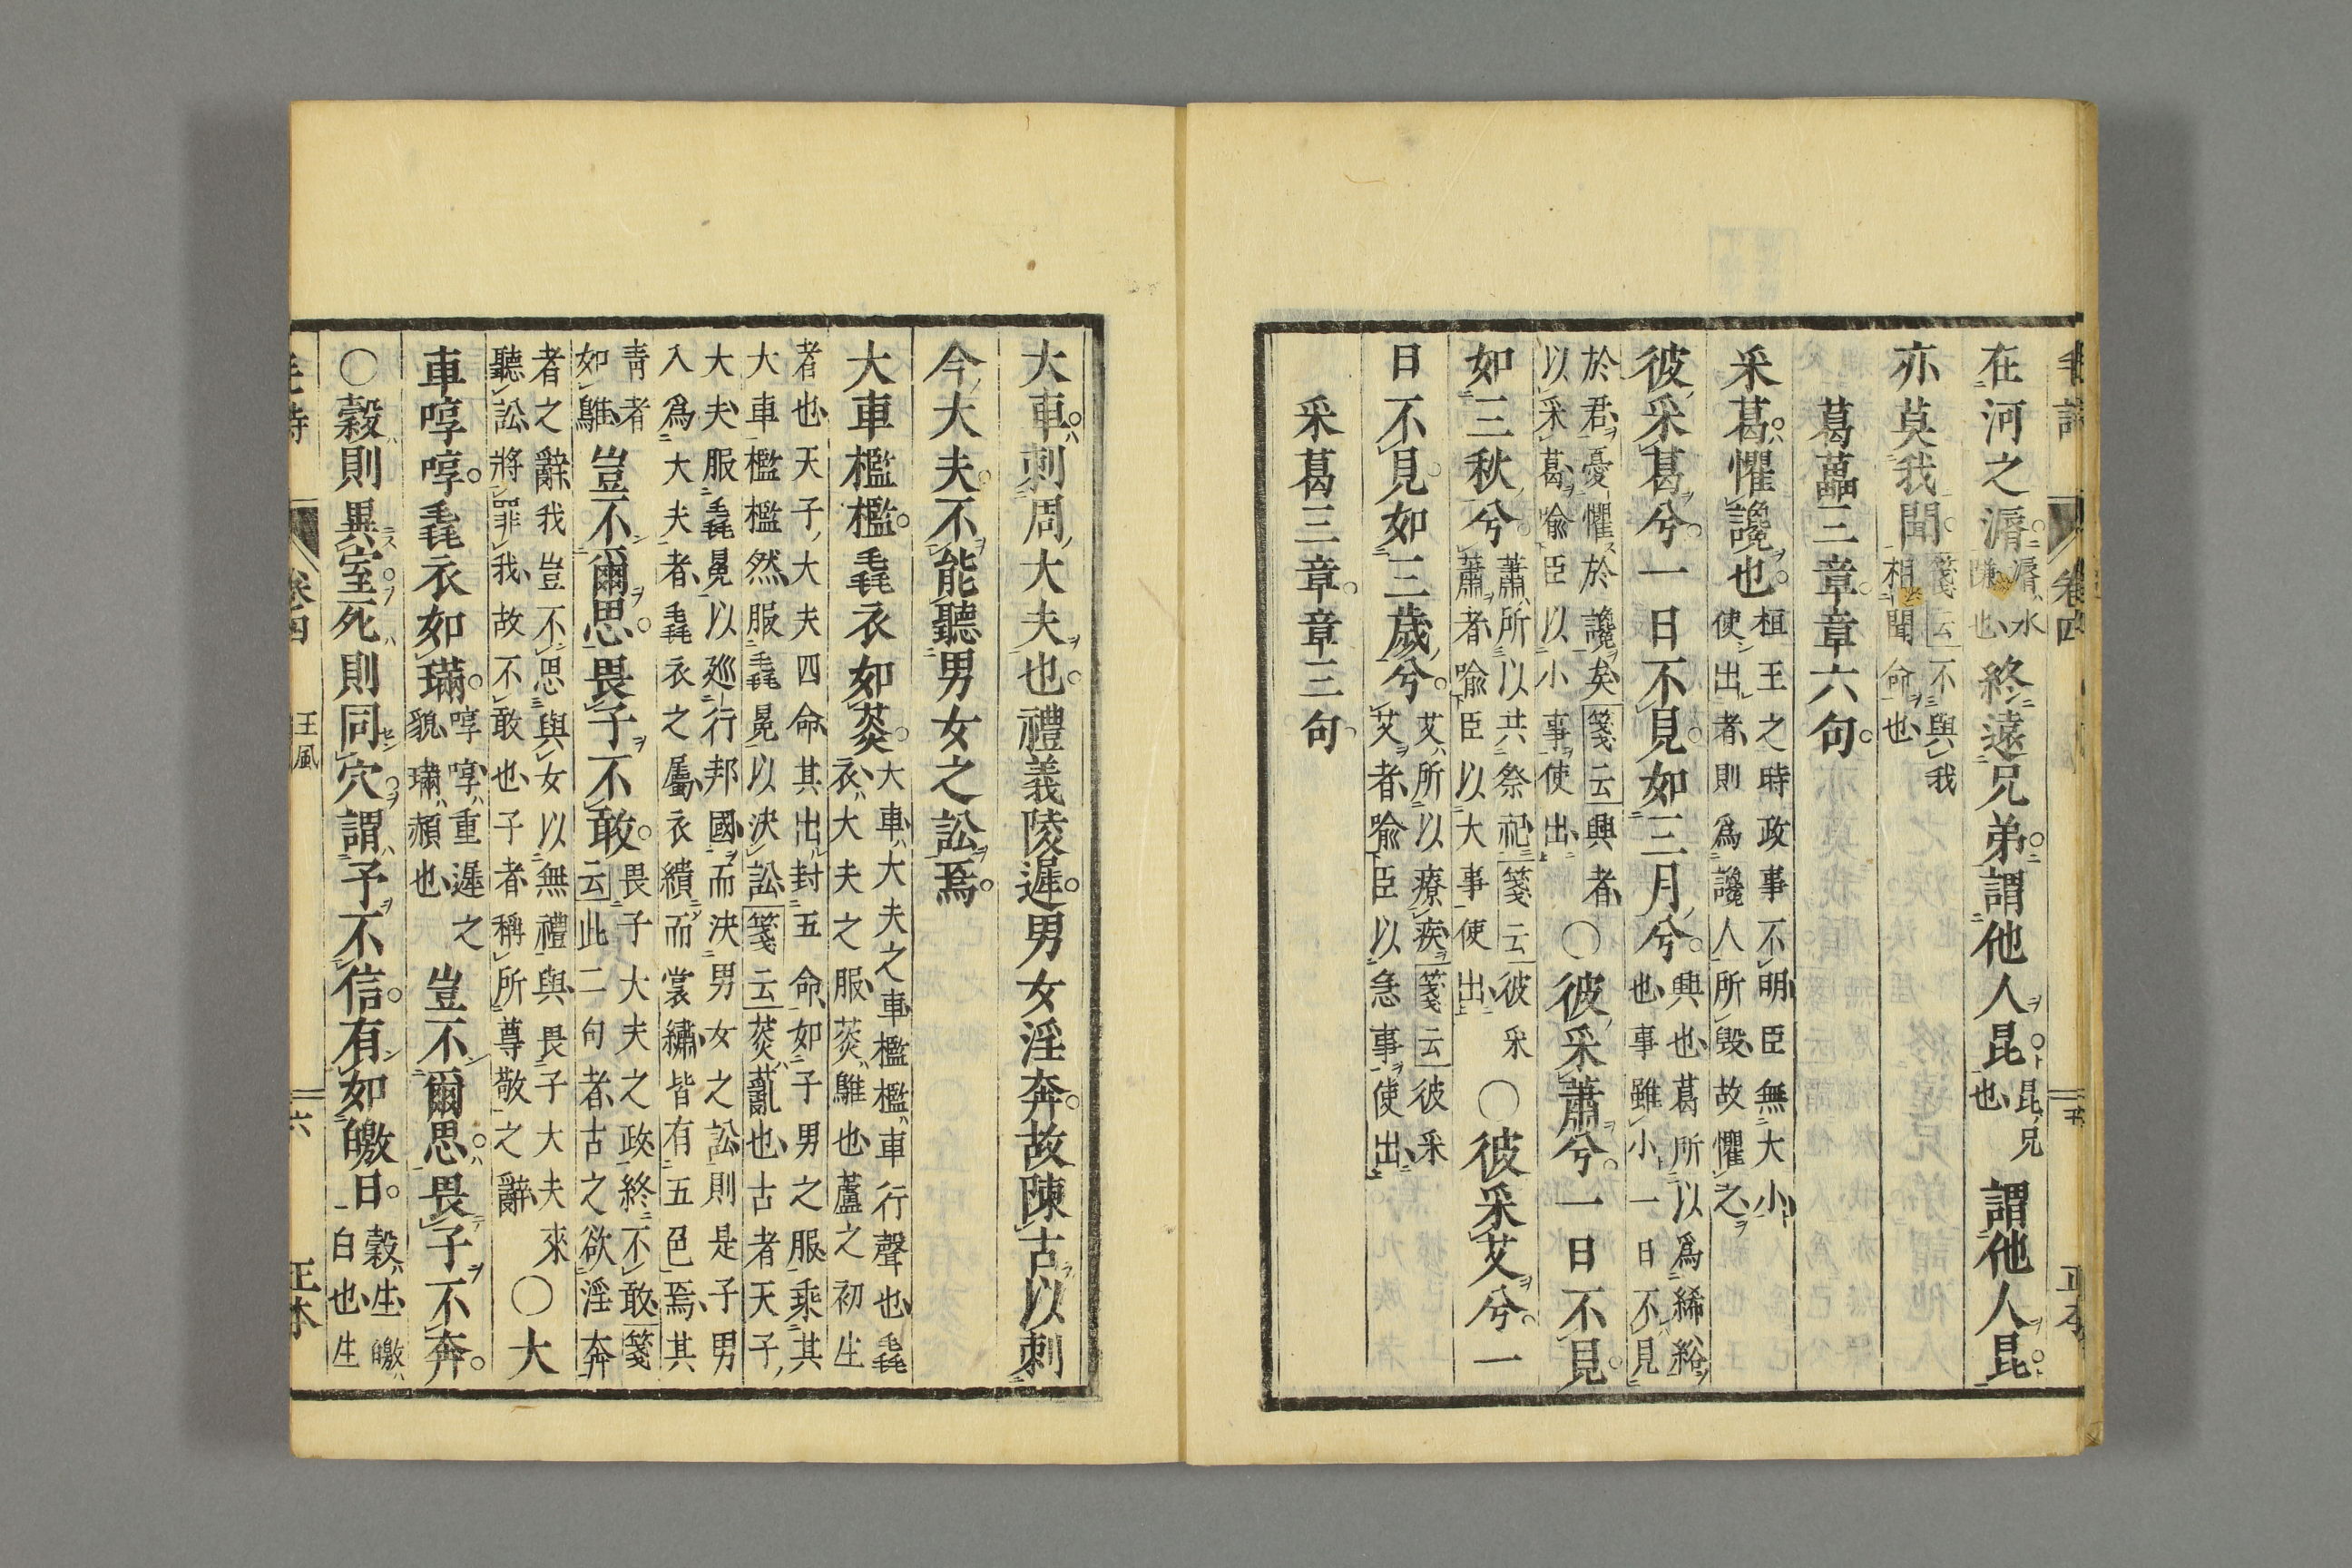 毛詩 卷四 五 正本
在河之漘漘水隒也終遠兄弟謂他人昆昆兄也謂他人昆
亦莫我聞箋云不與我相聞命也
葛藟三章章六句
采葛懼讒也桓王之時政事不明臣無大小使出者則爲讒人所毀故懼之
彼采葛兮一日不見如三月兮興也葛所以爲絺綌也事雖小一日不見
於君憂懼於讒矣箋云興者以采葛喻臣以小事使出○彼采蕭兮一日不見
如三秋兮蕭所以共祭祀箋云彼采蕭者喻臣以大事使出○彼采艾兮一
日不見如三歲兮艾所以療疾箋云彼采艾者喻臣以急事使出
采葛三章章三句
大車刺周大夫也禮義陵遲男女淫奔故陳古以刺
今大夫不能聽男女之訟焉
大車檻檻毳衣如菼大車大夫之車檻檻車行聲也毳衣大夫之服菼鵻也蘆之初生
者也天子大夫四命其出封五命如子男之服乘其大車檻檻然服毳冕以決訟箋云菼薍也古者天子
大夫服毳冕以廵行邦國而決男女之訟則是子男入爲大夫者毳衣之屬衣繢而裳繡皆有五色焉其
青者如鵻豈不爾思畏子不敢畏子大夫之政終不敢箋云此二句者古之欲淫奔
者之辭我豈不思與女以無禮與畏子大夫來聽訟將罪我故不敢也子者稱所尊敬之辭○大
車啍啍毳衣如璊啍啍重遲之貌璊赬也豈不爾思畏子不奔
○穀則異室死則同穴謂予不信有如皦日穀生皦白也生
毛詩 卷四 王風 六 正本